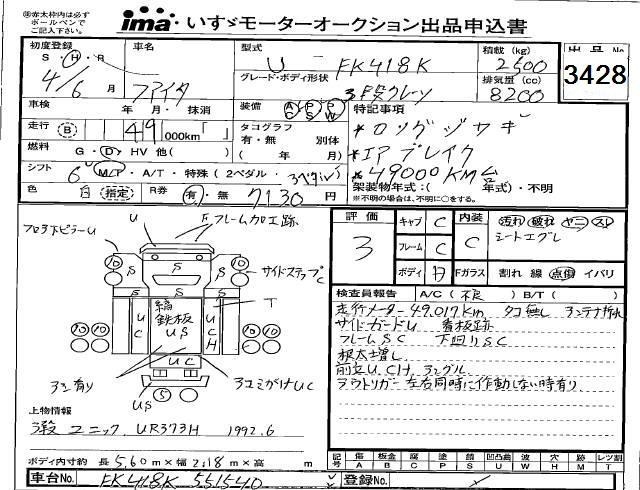 ㊟赤太枠内は必ず
ボールペンで
ご記入下さい。
ima いすゞモーターオークション出品申込書
初度登録
S・H・R
4/6月
車名
ファイタ
型式
U - FK418K
グレード・ボディ形状
3段クレーン
積載(kg)
2500
排気量(cc)
8200
出品No
3428
車検 年・月・抹消
装備 AC PS PW
走行 B 49 000km「 」
タコグラフ
有・無 別体
( 年 月)
燃料 G・D・HV 他( )
シフト 6 M/T・A/T・特殊(2ペダル・3ペダル)
色 白 指定
R券 有・無 7130円
特記事項
*ロングジサギ
*エアブレイク
*49000KM台
架装物年式:( 年式)・不明
※不明の場合は、不明に○をする。
フロア下ピラーU
U
Fフレーム加工跡
サイドステップC
S
S
S
S
10
10
10
10
縞
鉄板
US
UC
UCH
T
UC
US
5
3ユミがけUC
上物情報
3段 ユニック UR373H 1992.6
ボディ内寸約 長5.60m×幅2.18m×高 m
車台No. FK418K 551540
登録No.
評価
3
キャブ C
フレーム C
ボディ
内装 C
汚れ 破れ ヤニ スレ
シートエグレ
Fガラス 割れ 線 点傷 イバリ
検査員報告 A/C( 良 ) B/T( )
走行メーター49,017Km タコ無し アンテナ折れ
サイドガードU 看板跡
フレームSC 下回りSC
根太増し
前立UCH, 3アングル
アウトリガー 左右同時に作動しない時有り
記号 傷A 板金B 腐C 塗P 錆S 凹凸曲U 波W 穴H 跡M T レツ割